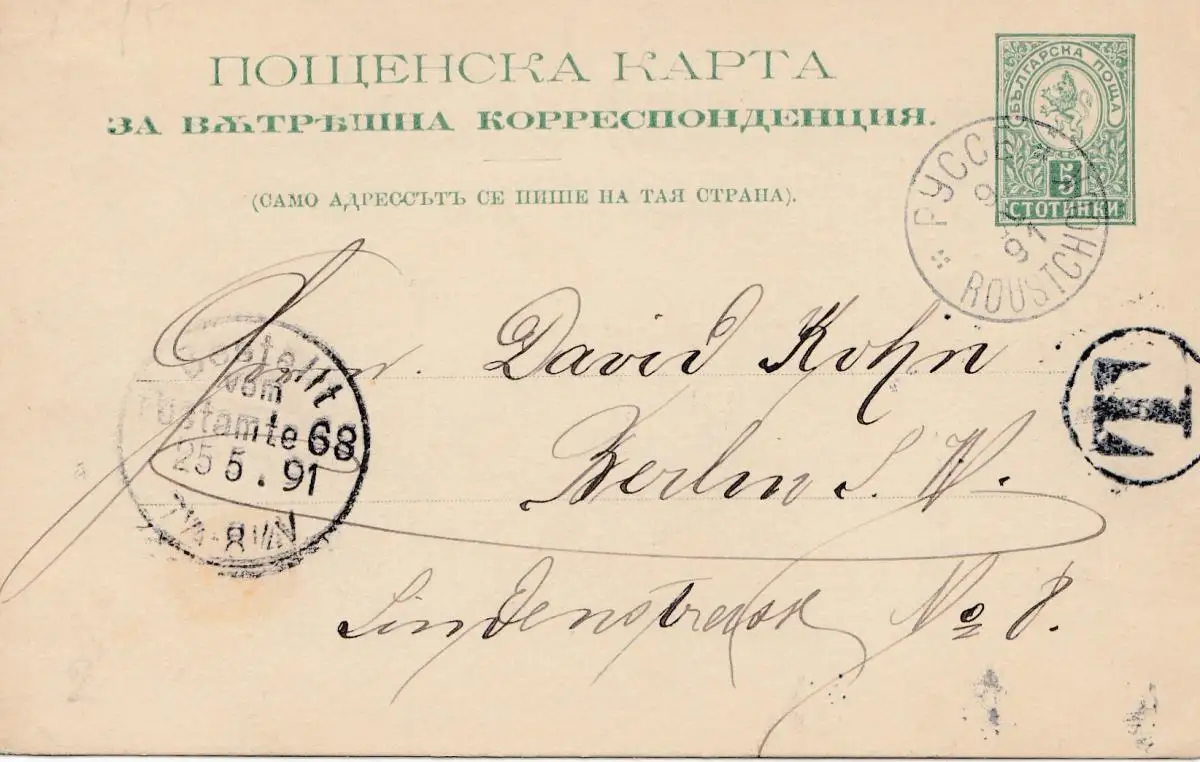 ПОЩЕНСКА КАРТА
ЗА ВѪТРѢШНА КОРРЕСПОНДЕНЦИЯ.
(САМО АДРЕССЪТЪ СЕ ПИШЕ НА ТАЯ СТРАНА).
БЪЛГАРСКА ПОЩА
5
СТОТИНКИ
РУССЕ
9
91
ROUSTCHO
Herrn. David Kohn
Berlin S. W.
Lindenstrasse No 8.
Bestellt
vom
Postamte 68
25 5. 91
7¼-8½N
T
2